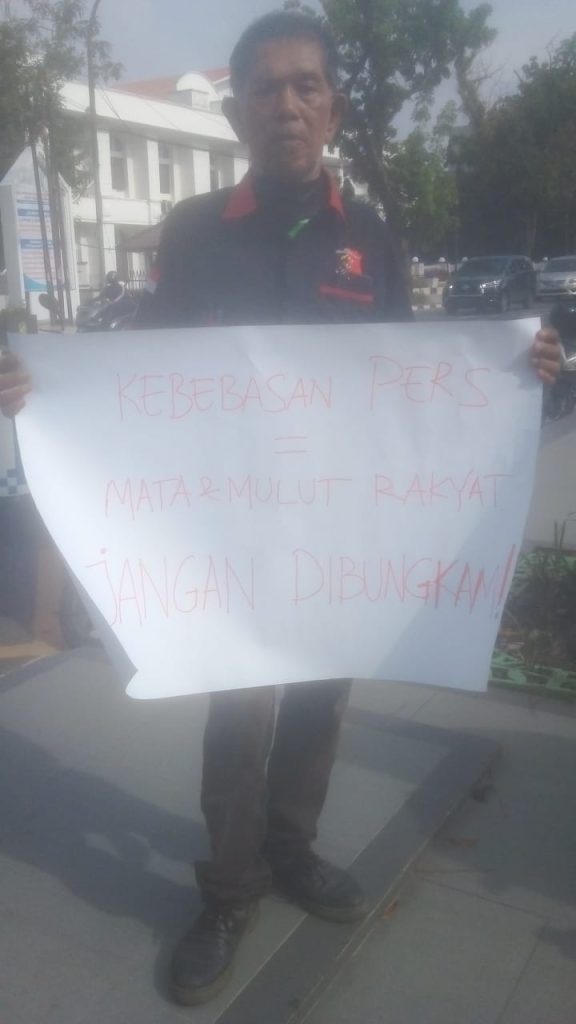 KEBEBASAN PERS
=
MATA & MULUT RAKYAT
JANGAN DIBUNGKAM!